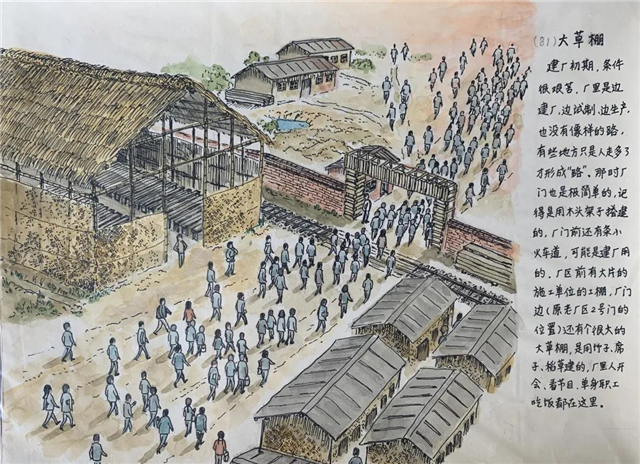 (81)大草棚
建厂初期,条件
很艰苦,厂里是边
建厂,边试制,边生产,
也没有像样的路,
有些地方只是人走多了
才形成“路”。那时厂
门也是极简单的,记
得是用木头架子搭建
的,厂门前还有条小
火车道,可能是建厂用
的。厂区前有大片的
施工单位的工棚,厂门
边(原老厂区2号门的
位置)还有个很大的
大草棚,是用竹子、席
子、稻草建的,厂里人开
会、看节目、单身职工
吃饭都在这里。